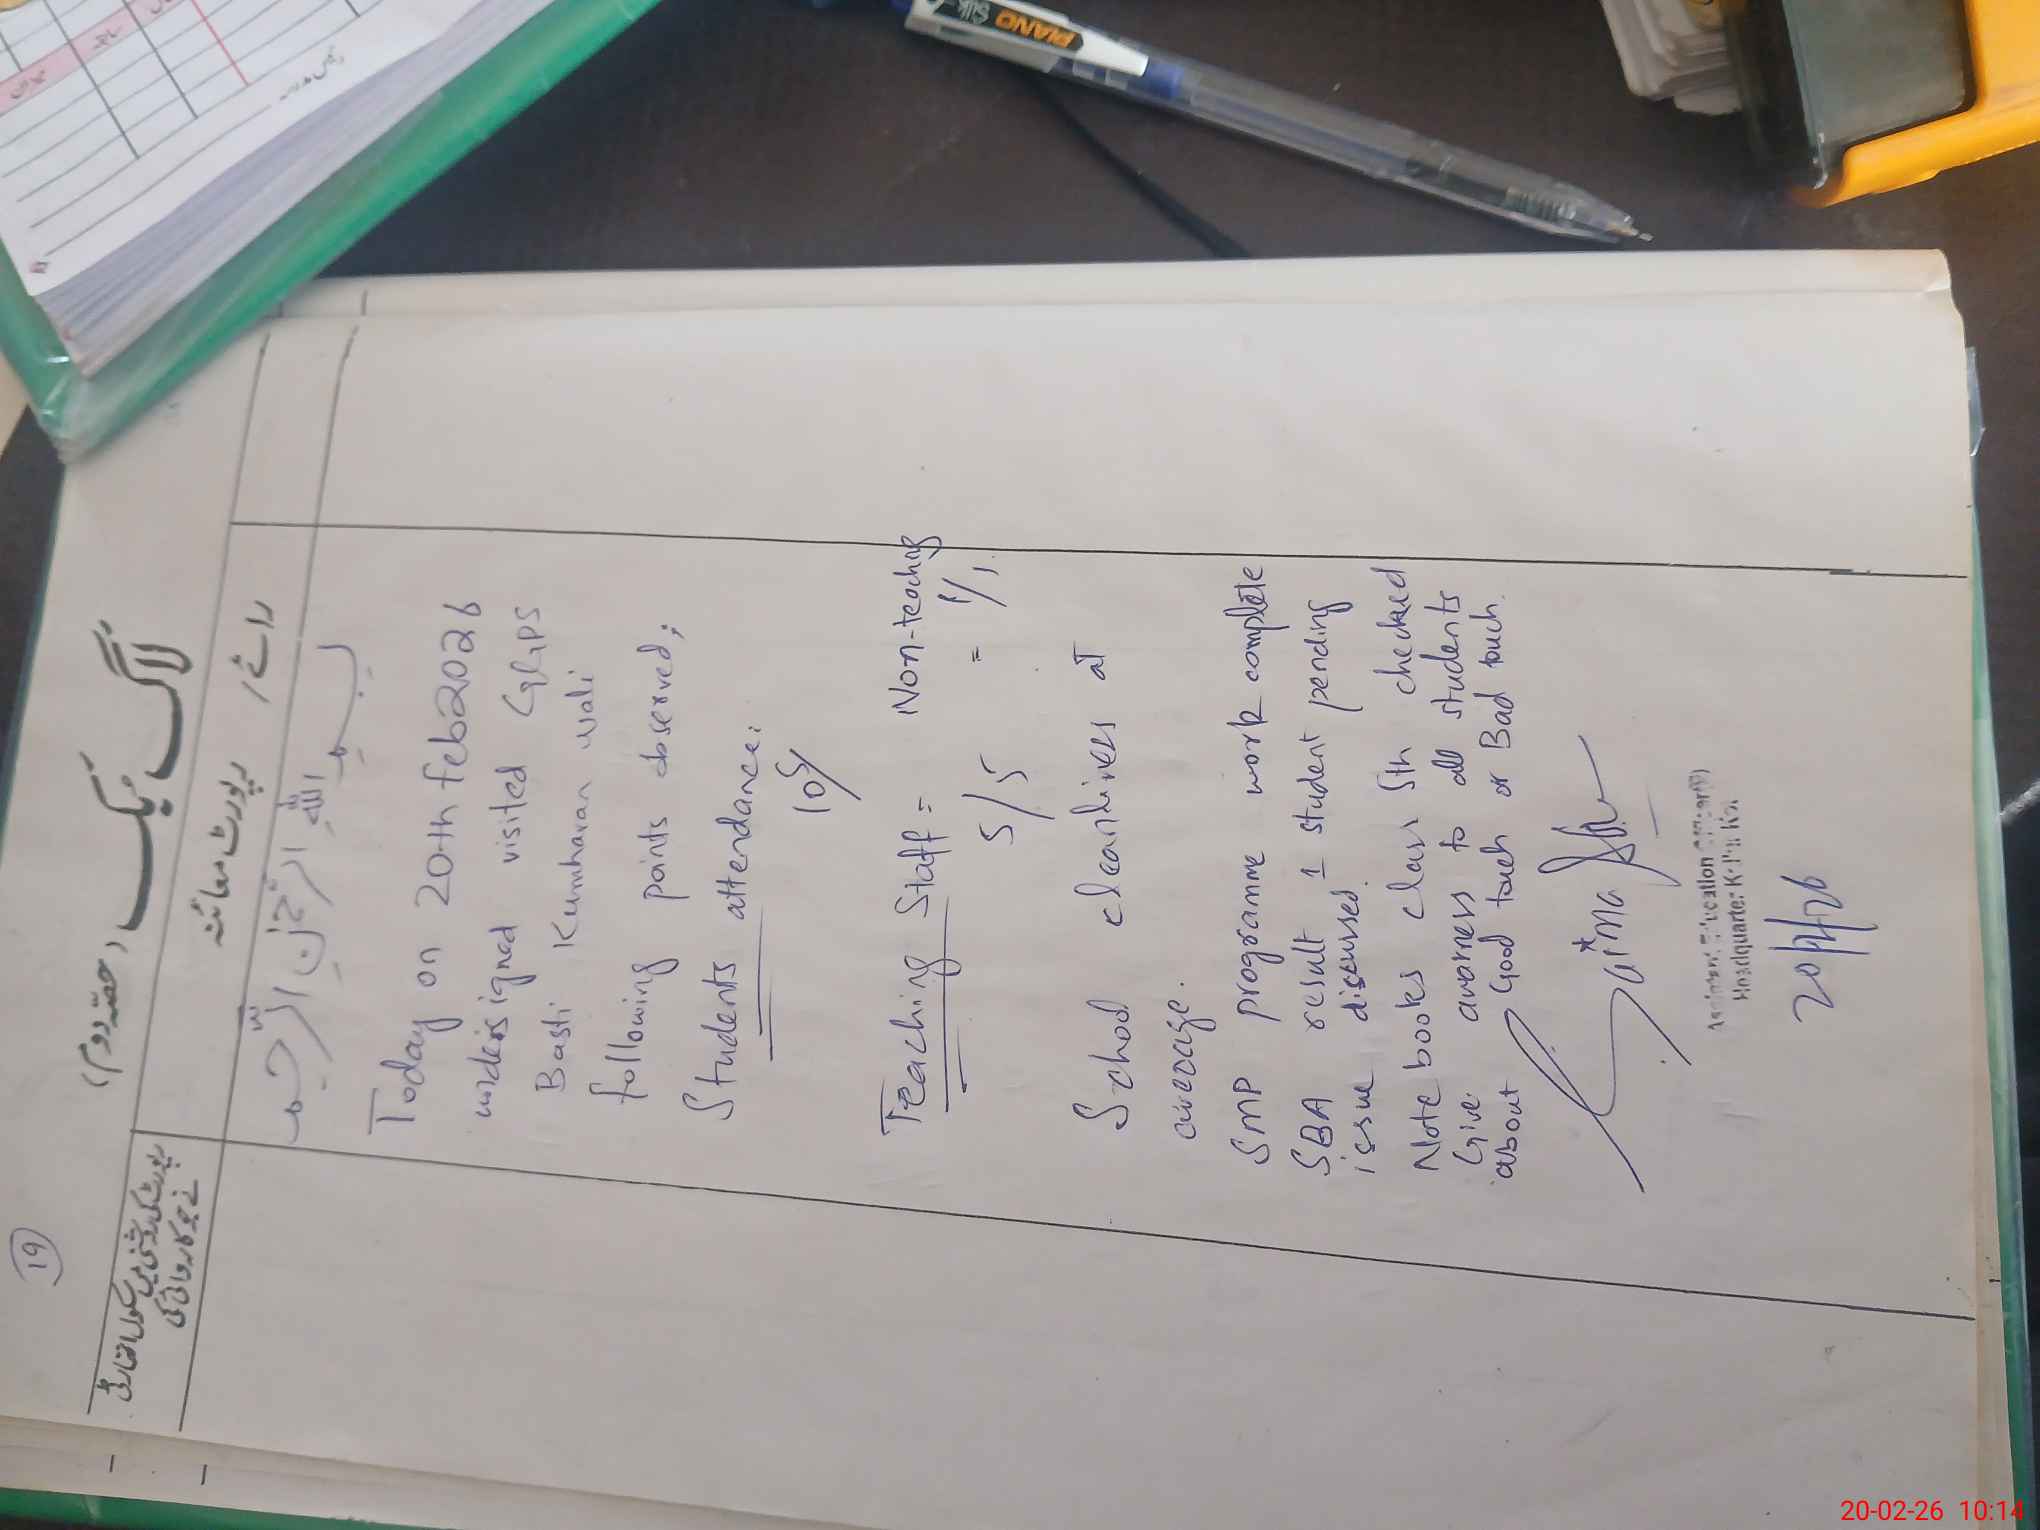 19
لاگ بک (حصہ دوم)
رپورٹ معائنہ
رائے
رپورٹ کی روشنی میں سکول انچارج
نے جو کاروائی کی
بسم اللہ الرحمٰن الرحیم
Today on 20th feb 2026
undersigned visited GGPS
Basti Kumharan wali
following points observed;
Students attendance:
105
Teaching Staff = Non-teaching
5/5 = 1/1.
School cleanliness at
avarage.
SMP programme work complete
SBA result 1 student pending
issue discussed.
Note books class 5th checked
Give awarness to all students
about Good touch or Bad touch.
Saima
Assistant Education Officer
Headquarter
20/2/26
PIANO
Silk
20-02-26 10:14